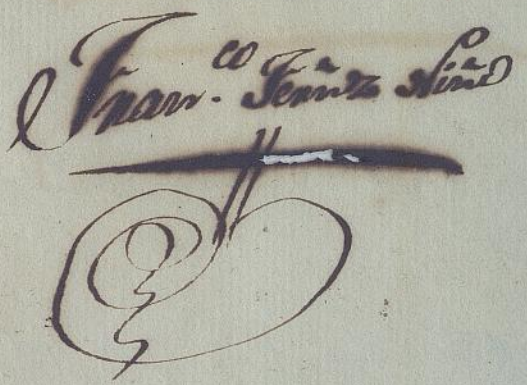 Fran.co Fernz Niño